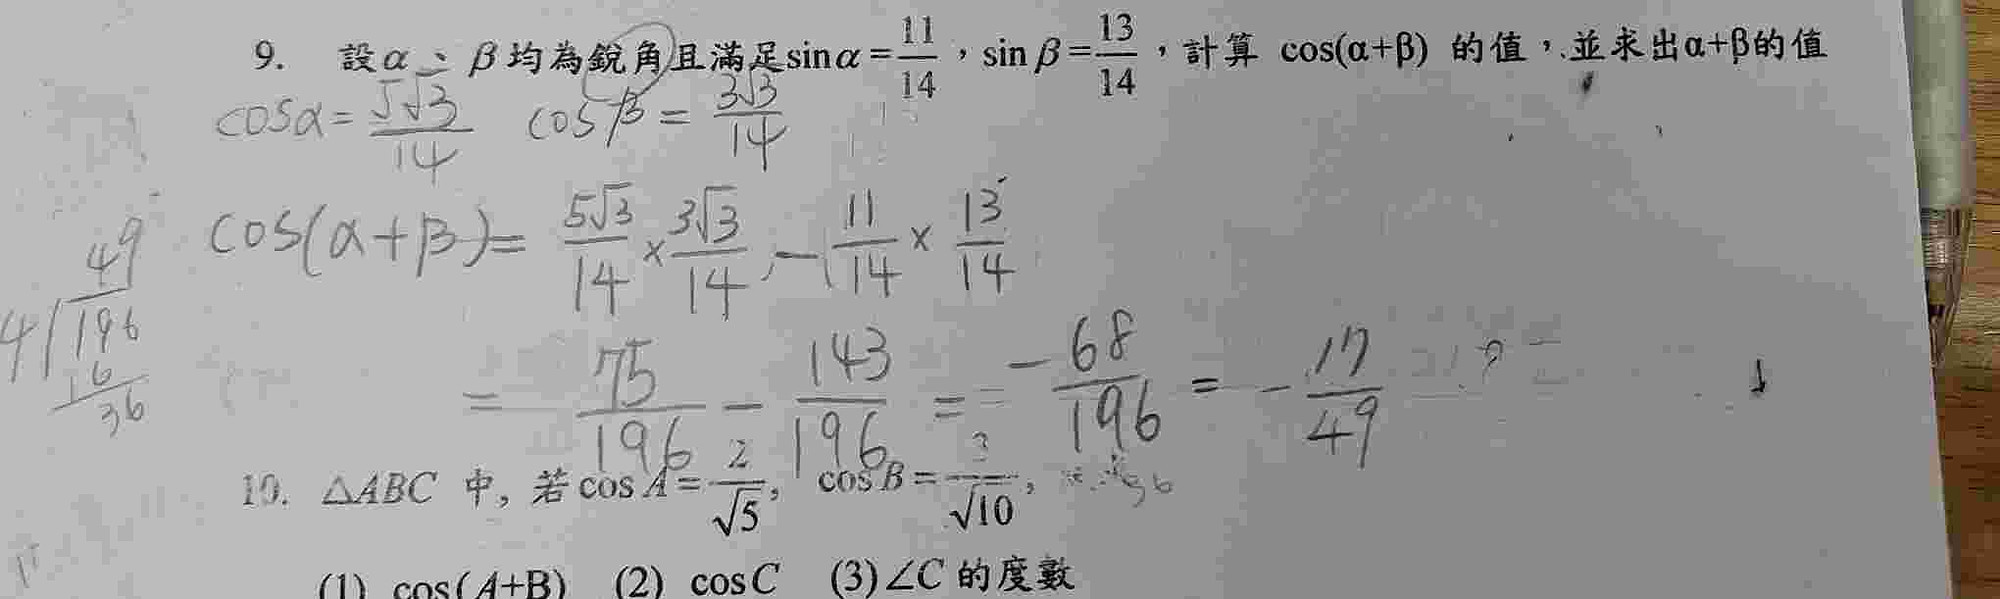 9. 設α、β均為銳角且滿足sinα=11/14，sinβ=13/14，計算 cos(α+β) 的值，並求出α+β的值
cosα=5√3/14 cosβ=3√3/14
cos(α+β)=5√3/14×3√3/14-11/14×13/14
49
4√196
16
36
=75/196-143/196=-68/196=-17/49
10. △ABC 中, 若cosA=2/√5, cosB=3/√10,
(1) cos(A+B) (2) cosC (3)∠C 的度數